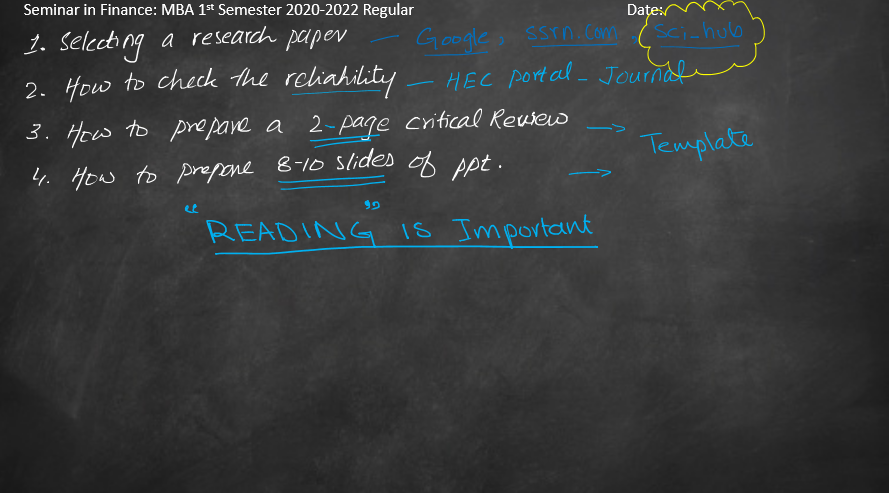 Seminar in Finance: MBA 1st Semester 2020-2022 Regular Date:
1. Selecting a research paper – Google, ssrn.com, Sci-hub
2. How to check the reliability – HEC portal – Journal
3. How to prepare a 2-page critical Review →
Template
4. How to prepare 8-10 slides of ppt. →
"READING" is Important